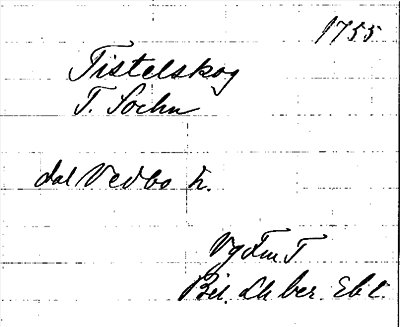 1755
Tistelskog
T. Sochn
dal Vedbo h.
Vgdm T
Bil. Lh ber. Ebl.